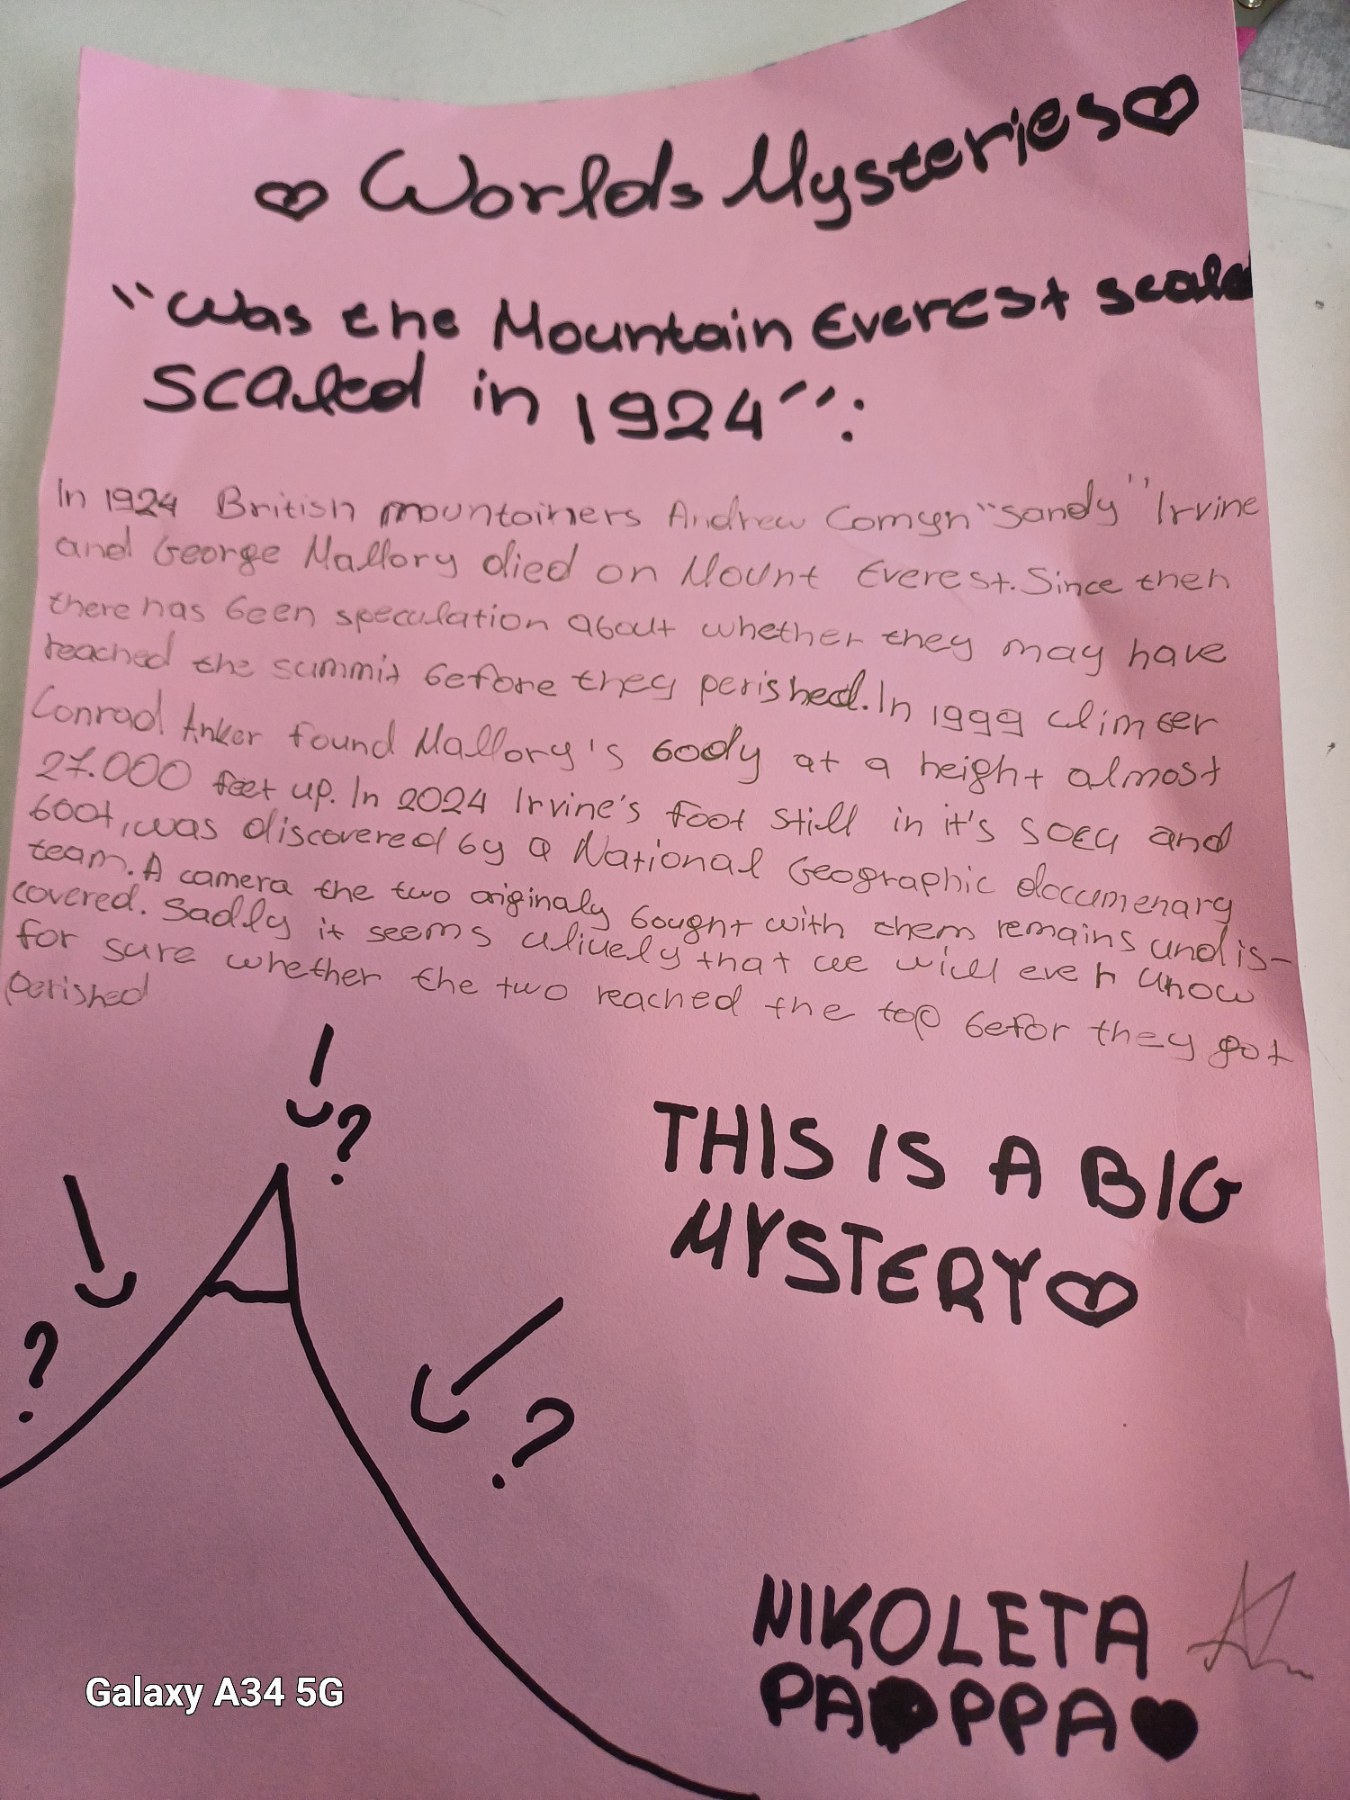 Worlds Mysteries
"Was the Mountain Everest scaled
scaled in 1924":
In 1924 British mountainers Andrew Comyn "Sandy" Irvine
and George Mallory died on Mount Everest. Since then
there has been speculation about whether they may have
reached the summit before they perished. In 1999 climber
Conrad Anker found Mallory's body at a height almost
27.000 feet up. In 2024 Irvine's foot still in it's socu and
boot, was discovered by a National Geographic documenary
team. A camera the two originaly bought with them remains undis-
covered. Sadly it seems ulikely that we will ever know
for sure whether the two reached the top befor they got
perished
?
?
?
THIS IS A BIG
MYSTERY
NIKOLETA
PAPPPA
Galaxy A34 5G